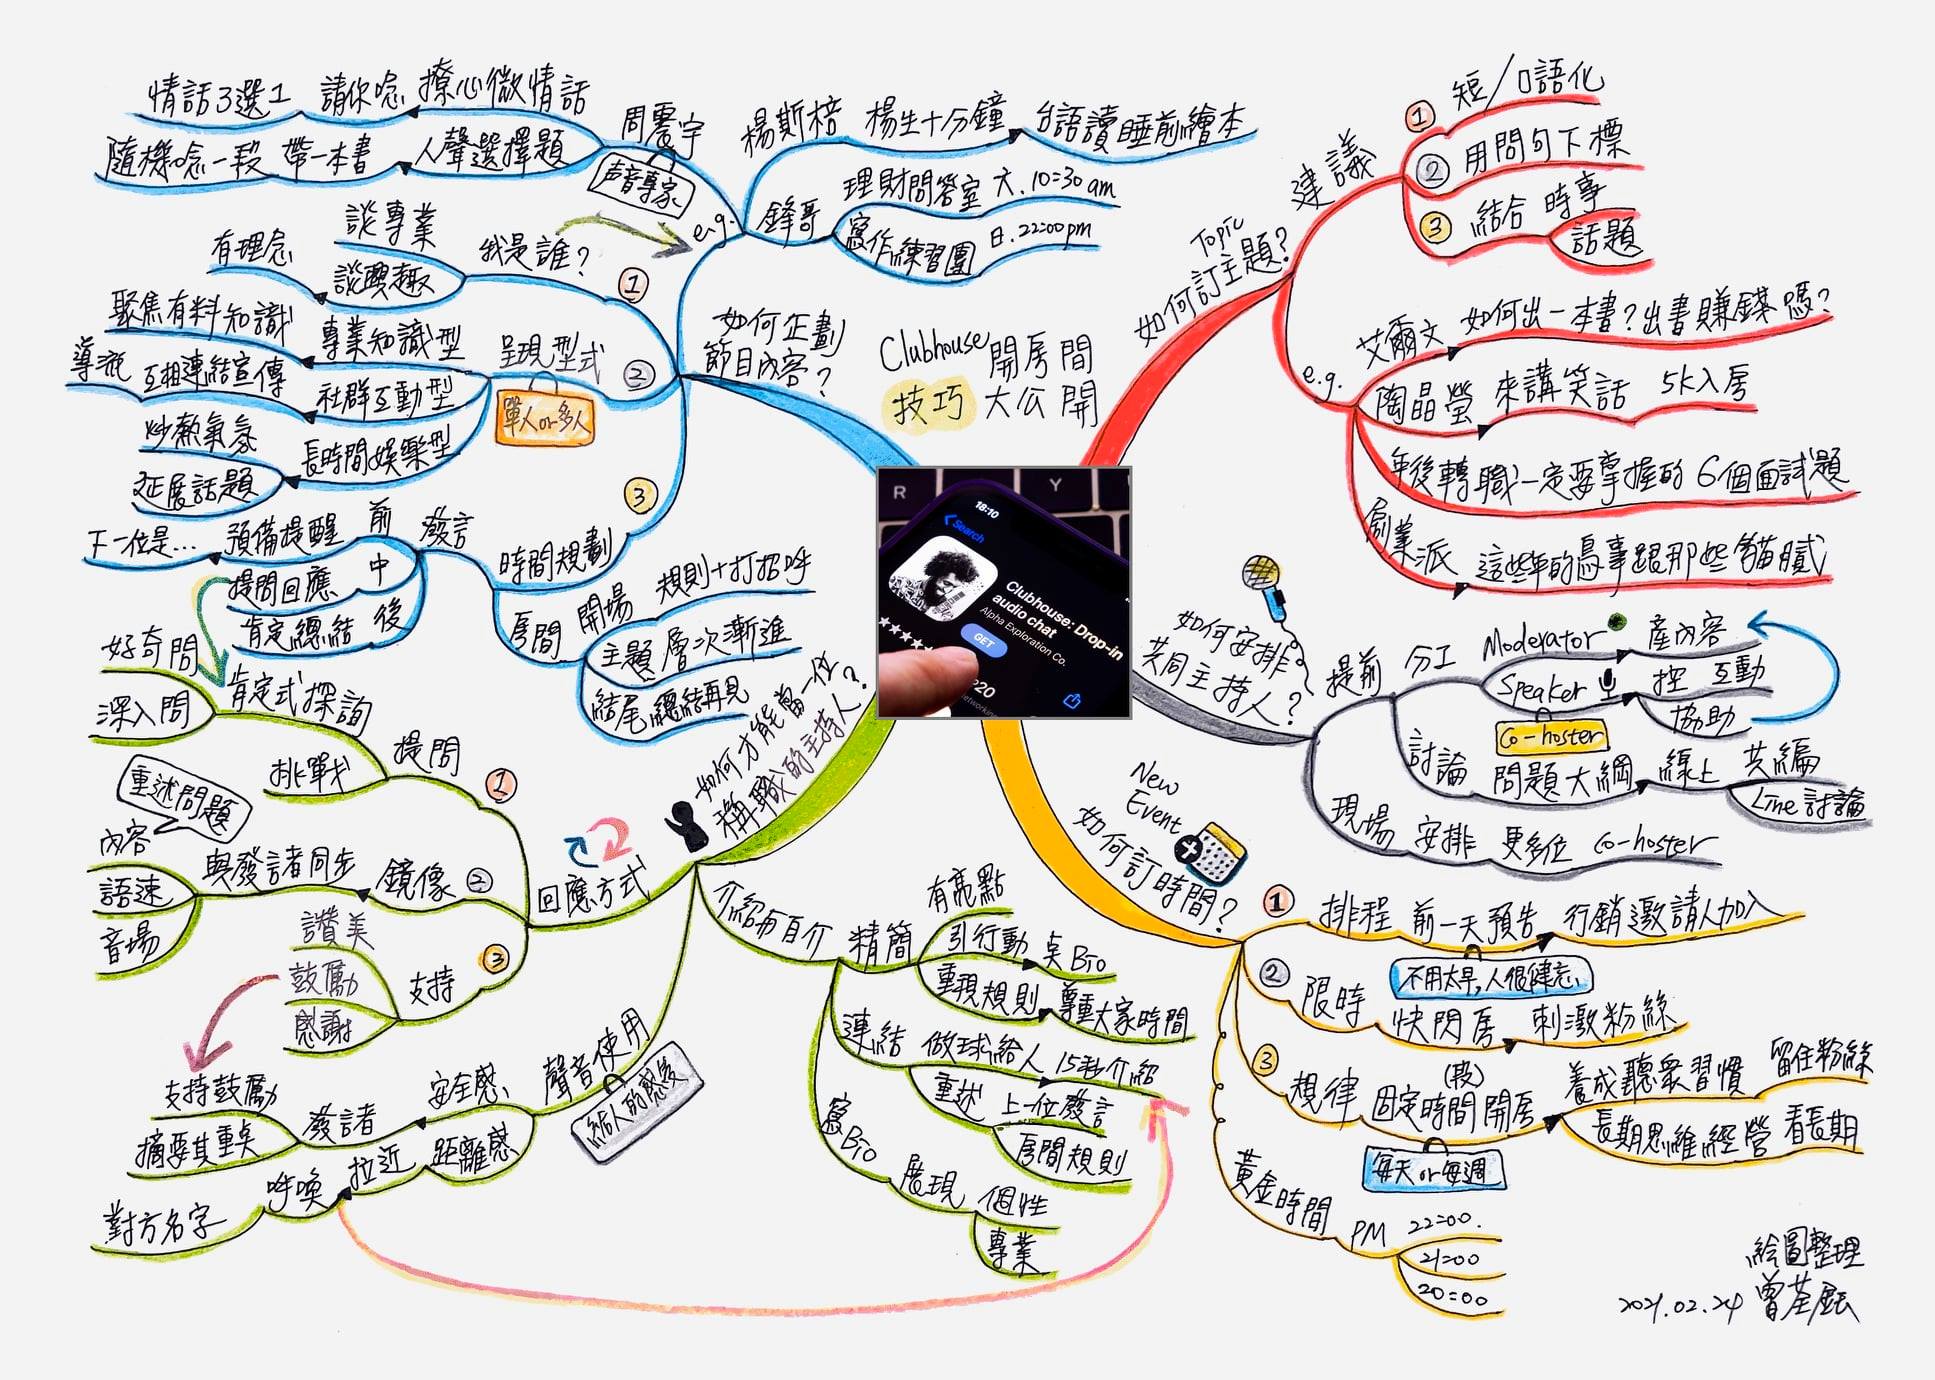 Clubhouse 開房間
技巧 大公開
R
Y
18:10
Search
Clubhouse: Drop-in
audio chat
Alpha Exploration Co.
GET
Topic
如何訂主題?
建議
1 短/口語化
2 用問句下標
3 結合 時事
話題
e.g.
艾爾文 如何出一本書?出書賺錢嗎?
陶晶瑩 來講笑話 5k入房
年後轉職一定要掌握的 6個面試題
創業派 這些年的鳥事跟那些貓膩
如何安排
共同主持人?
提前 分工
Moderator 產內容
Speaker 控 互動
協助
Co-hoster
討論 問題大綱 線上 共編
Line 討論
現場 安排 更多位 Co-hoster
New
Event
如何訂時間?
1 排程 前一天預告 行銷邀請人加入
不用太早,人很健忘
2 限時 快閃房 刺激粉絲
3 規律 固定時間(段)開房 養成聽眾習慣 留住粉絲
長期思維經營 看長期
每天 or 每週
黃金時間 PM 22:00.
21:00
20:00
如何才能當一任
稱職的主持人?
回應方式
1 提問
肯定式探詢
好奇問
深入問
挑戰
2 鏡像 與發諸同步
重述問題
內容
語速
音場
3 支持
讚美
鼓勵
感謝
聲音使用
給人的感後
安全感 發諸
支持鼓勵
摘要其重点
距離感 拉近 呼喚 對方名字
介紹与自介
精簡
有亮點
引行動 点 Bio
重現規則 尊重大家時間
連結 做球給人 15秒介紹
重述 上一位發言
房間規則
寫Bio 展現 個性
專業
如何企劃
節目內容?
e.g.
周震宇
声音專家
撩心微情話 請你唸 情話3選1
人聲選擇題 帶一本書 隨機唸一段
楊斯棓 楊生十分鐘 台語讀睡前繪本
鋒哥 理財問答室 六.10:30 am
寫作練習團 日.22:00pm
1 我是誰?
談專業
談興趣
有理念
2 呈現型式
單人or多人
專業知識型 聚焦有料知識
社群互動型 互相連結宣傳 導流
長時間娛樂型 炒熱氣氛
延展話題
3 時間規劃
發言
前 預備提醒 下一位是...
中 提問回應
後 肯定總結
房間
開場 規則+打招呼
主題 層次漸進
結尾 總結再見
繪圖整理
2021.02.24